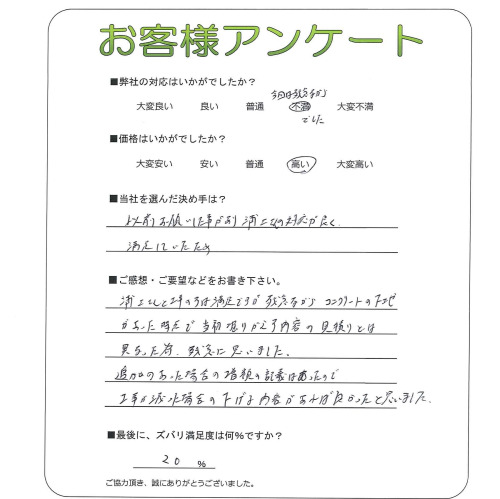 お客様アンケート
■弊社の対応はいかがでしたか？
今回は残念ながら
大変良い 良い 普通 不満 大変不満
でした
■価格はいかがでしたか？
大変安い 安い 普通 高い 大変高い
■当社を選んだ決め手は？
以前お願いした事があり 浦上さんの対応が良く、
満足していたため
■ご感想・ご要望などをお書き下さい。
浦上さんと工事の方は満足ですが 残念ながら コンクリートの下地
があった時点で当初 から 内容の見積りとは
異なった為、残念に思いました。
追加のあった場合の増額の記載はあったので
工事が減った場合の下げる内容があれば良かったと思いました。
■最後に、ズバリ満足度は何%ですか？
20 %
ご協力頂き、誠にありがとうございました。